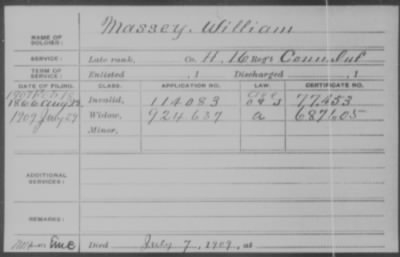 NAME OF SOLDIER: Massey, William
SERVICE: Late rank, Co. H, 16 Reg't Conn Inf
TERM OF SERVICE: Enlisted , 1 Discharged , 1
DATE OF FILING. CLASS. APPLICATION NO. LAW. CERTIFICATE NO.
1866 Aug Invalid, 114083 77453
1909 July 29 Widow, 924637 a 687605
Minor,
ADDITIONAL SERVICES:
REMARKS:
Died July 7, 1909, at